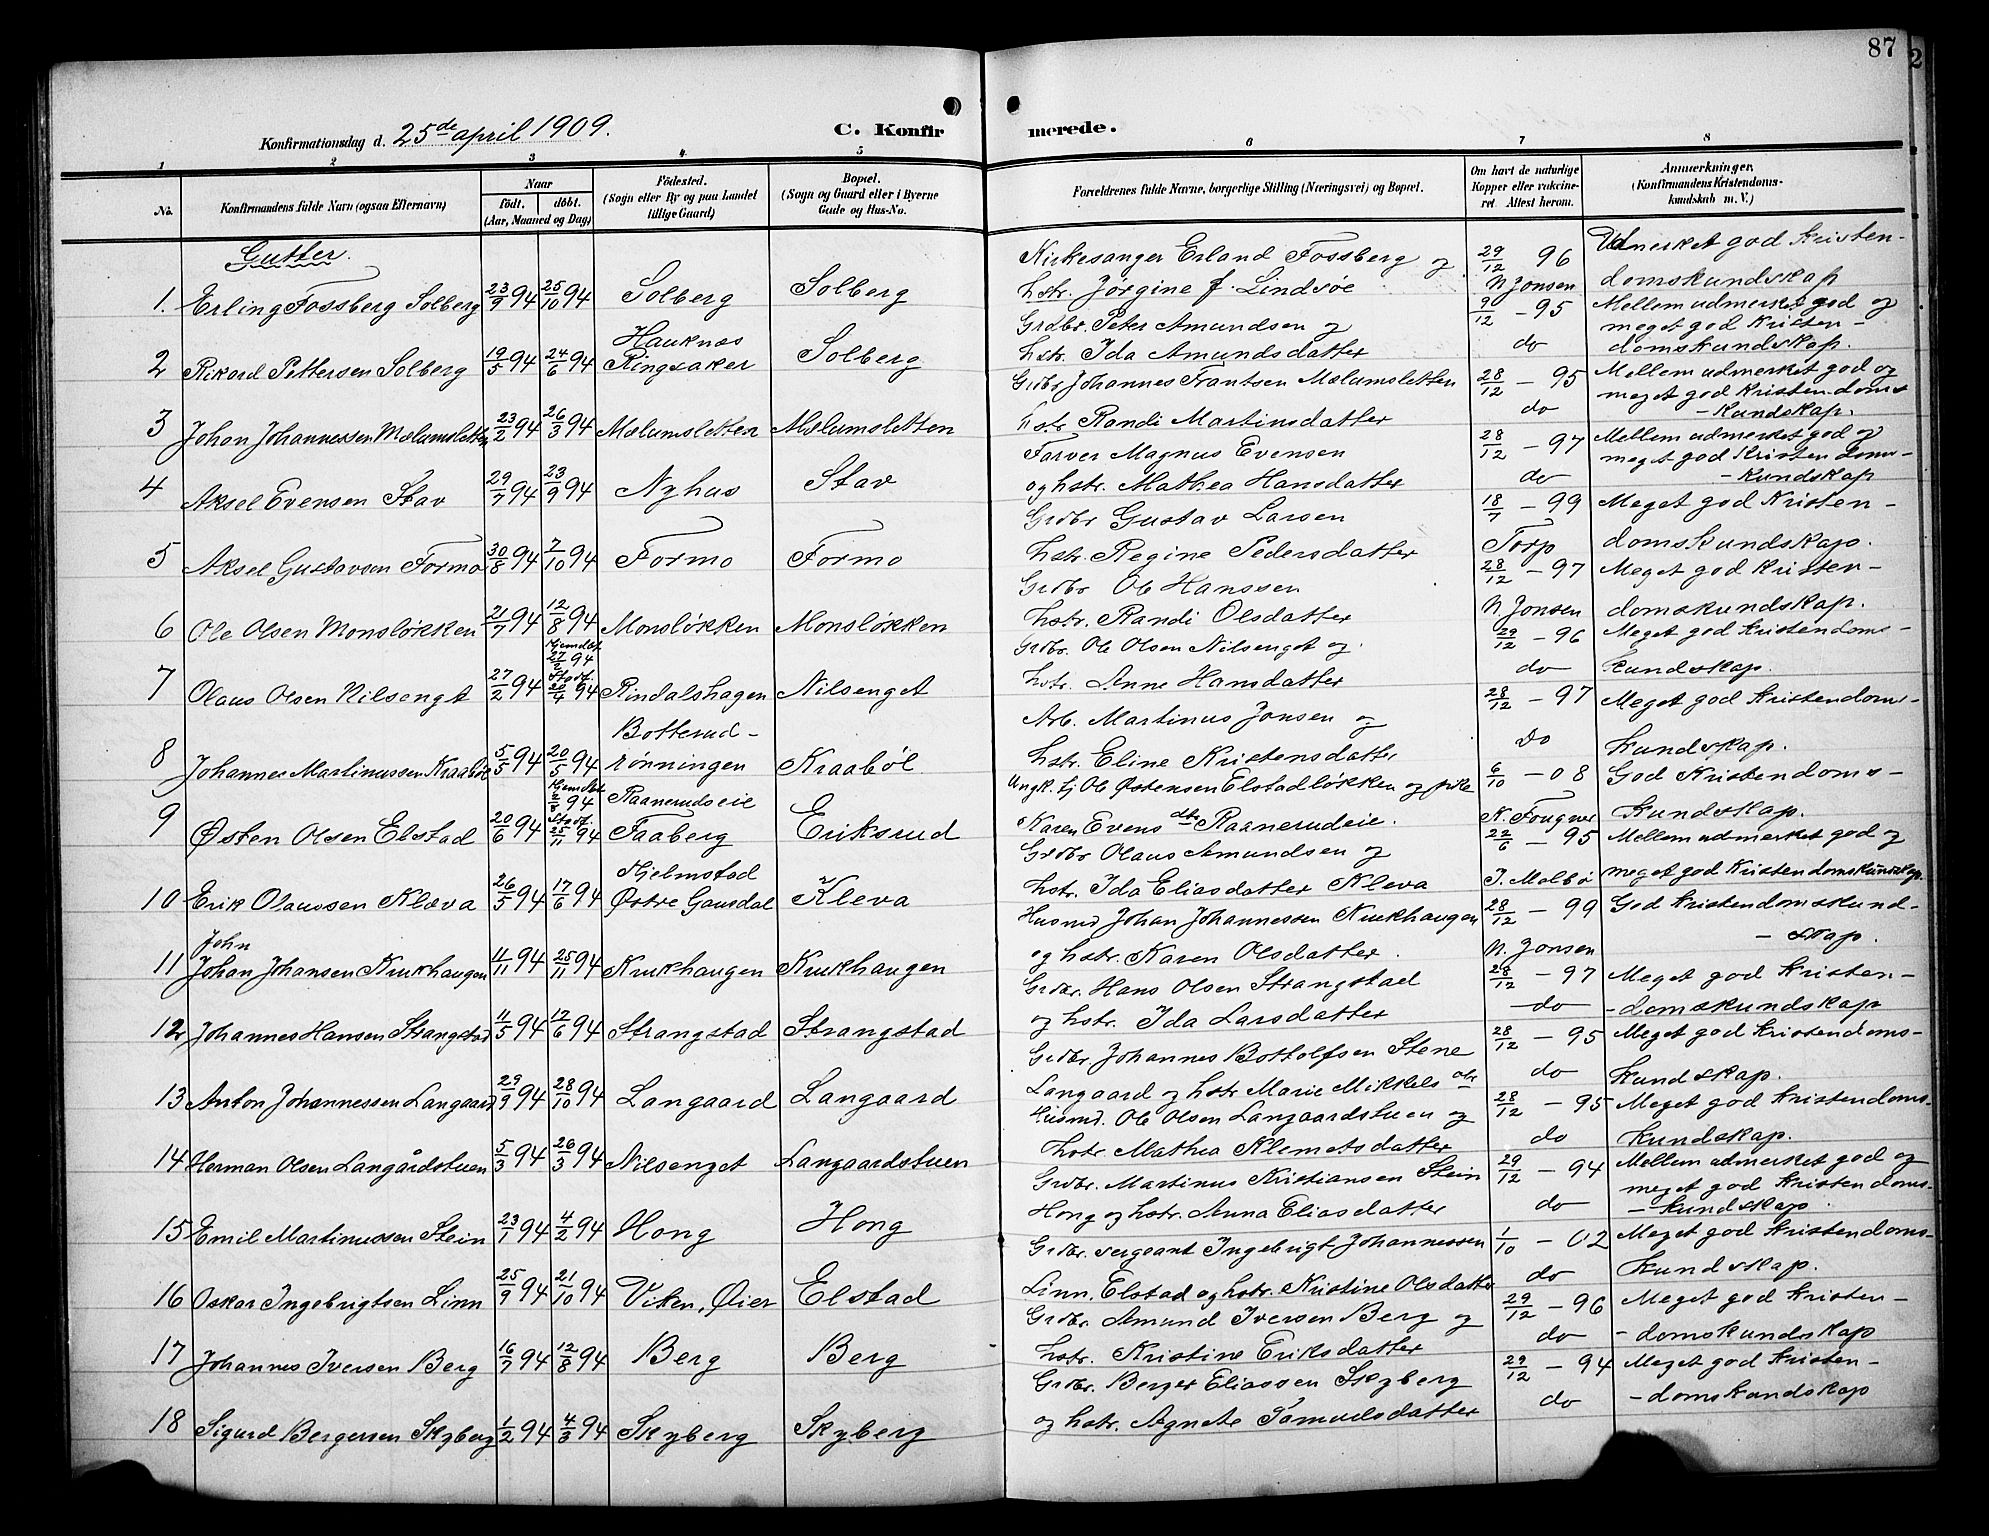 87
2
Konfirmationsdag d. 25de april 1909.
C. Konfirmerede.
1 2 3 4 5 6 7 8
No.
Konfirmandens fulde Navn (ogsaa Efternavn)
Naar
födt. döbt.
(Aar, Maaned og Dag)
Födested.
(Sogn eller By og paa Landet
tillige Gaard)
Bopæl.
(Sogn og Gaard eller i Byerne
Gade og Hus-No.
Forældrenes fulde Navne, borgerlige Stilling (Næringsvei) og Bopæl.
Om havt de naturlige
Kopper eller vakcine-
ret. Attest herom.
Anmærkninger.
(Konfirmandens Kristendoms-
kundskab m. V.)
Gutter.
1. Erling Fossberg Solberg 23/9 94 25/10 94 Solberg Solberg
Kirkesanger Erland Fossberg og 29/12 96 Udmerket god Kristen-
hstr. Jørgine f. Lindsøe N Jonsen domskundskap
2 Rikard Pettersen Solberg 19/5 94 24/6 94 Hauknes Ringsaker Solberg
Grdbr. Peter Amundsen og 9/12 - 95 Mellem udmerket god og
meget god Kristen-
hstr. Ida Amundsdatter do domskundskap.
3 Johan Johannessen Mælumsletten 23/2 94 26/3 94 Mælumsletten Mælumsletten
Grdbr Johannes Frantsen Mælumsletten 28/12 - 95 Mellem udmerket god og
meget god Kristendoms
hstr Randi Martinsdatter do - Kundskap.
4 Aksel Evensen Stav 29/7 94 23/9 94 Nyhus Stav
Farver Magnus Evensen 28/12 - 97 Mellem udmerket god og
meget god Kristendoms-
og hstr. Mathea Hansdatter do - Kundskap
5 Aksel Gustavsen Formo 30/8 94 7/10 94 Formo Formo
Grdbr Gustav Larsen 18/7 - 99 Meget god Kristen-
hstr. Regine Pedersdatter Torp domskundskap.
6 Ole Olsen Monsløkken 21/7 94 12/8 94 Monsløkken Monsløkken
Grdbr Ole Hanssen 28/12 - 97 Meget god Kristen-
hstr. Randi Olsdatter N. Jonsen domskundskap.
7 Olaus Olsen Nilsenget 27/2 94 Hjemdbt. 27/2 94 Stadf. 20/4 94 Rindalshagen Nilsenget
Grdbr. Ole Olsen Nilsenget og 29/12 - 96 Meget god Kristendoms-
hstr. Anne Hansdatter do kundskap.
8 Johannes Martinussen Kraabøl 5/5 94 20/5 94 Botterud-
rønningen Kraabøl
Arb. Martinus Jonsen og 28/12 - 97 Meget god Kristendoms-
hstr. Eline Kristensdatter do kundskap.
9 Østen Olsen Elstad 20/6 94 Hjemdbt 2/8 94 Stadf. 25/11 94 Raanerudseie
Faaberg Eriksrud
Ungk. tj Ole Østensen Elstadløkken og pike 6/10 - 08 God Kristendoms-
Karen Evens dtr Raanerudeie. K. Fougner Kundskap.
10 Erik Olaussen Kleva 26/5 94 17/6 94 Hjelmstad
Østre Gausdal Kleva
Grdbr Olaus Amundsen og 22/6 - 95 Mellem udmerket god og
hstr. Ida Eliasdatter Kleva J. Melbø meget god Kristendomskunskap.
11 John
Johan Johansen Krukhaugen 4/11 94 25/11 94 Krukhaugen Krukhaugen
Husmd Johan Johannessen Krukhaugen 28/12 - 99 God Kristendomskund-
og hstr. Karen Olsdatter. N. Jonsen - skap.
12 Johannes Hansen Strangstad 11/5 94 17/6 94 Strangstad Strangstad
Grdbr. Hans Olsen Strangstad 28/12 - 97 Meget god Kristen-
og hstr. Ida Larsdatter do - domskundskap
13 Anton Johannessen Langaard 29/9 94 28/10 94 Langaard Langaard
Grdbr Johannes Bottolfsen Stene 28/12 - 95 Meget god Kristendoms-
Langaard og hstr Marie Mikkels dtr do Kundskap.
14 Herman Olsen Langårdstuen 5/3 94 26/3 94 Nilsenget Langaardstuen
Husmd. Ole Olsen Langaardstuen og 28/12 - 95 Meget god Kristendoms-
hstr Mathea Klemetsdatter do Kundskap.
15 Emil Martinussen Stein 23/1 94 4/2 94 Hong Hong
Grdbr. Martinus Kristiansen Stein 29/12 - 94 Mellem udmerket god og
meget god Kristendoms-
Hong og hstr. Anna Eliasdatter do - Kundskap
16 Oskar Ingebrigtsen Linn 25/9 94 21/10 94 Viken, Øier Elstad
Grdbr. sergeant Ingebrigt Johannessen 1/10 - 02 Meget god Kristendoms-
Linn, Elstad og hstr. Kristine Olsdatter do Kundskap.
17 Johannes Iversen Berg 16/7 94 12/8 94 Berg Berg
Grdbr. Amund Iversen Berg og 29/12 - 96 Meget god Kristen-
hstr. Kristine Eriksdatter do - domskundskap
18 Sigurd Bergersen Skyberg 1/2 94 4/3 94 Skyberg Skyberg
Grdbr. Berger Eliassen Skyberg 29/12 - 94 Meget god Kristen-
og hstr. Agnete Tomasdatter do - domskundskap